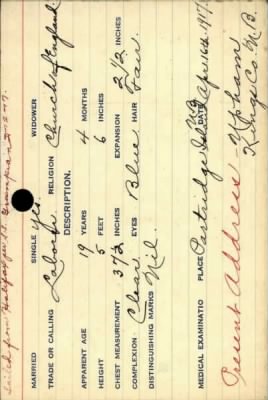 Sailed from Halifax per S.S.
MARRIED SINGLE Yes. WIDOWER
TRADE OR CALLING Laborer. RELIGION Church of England
DESCRIPTION.
APPARENT AGE 19 YEARS 4 MONTHS
HEIGHT 5 FEET 6 INCHES
CHEST MEASUREMENT 37½ INCHES EXPANSION 2½ INCHES
COMPLEXION Clear EYES Blue. HAIR Fair.
DISTINGUISHING MARKS Nil.
MEDICAL EXAMINATIO PLACE Partridge Isld N.B. DATE Apr. 16th 1917.
Present Address - Upham
Kings Co. N.B.